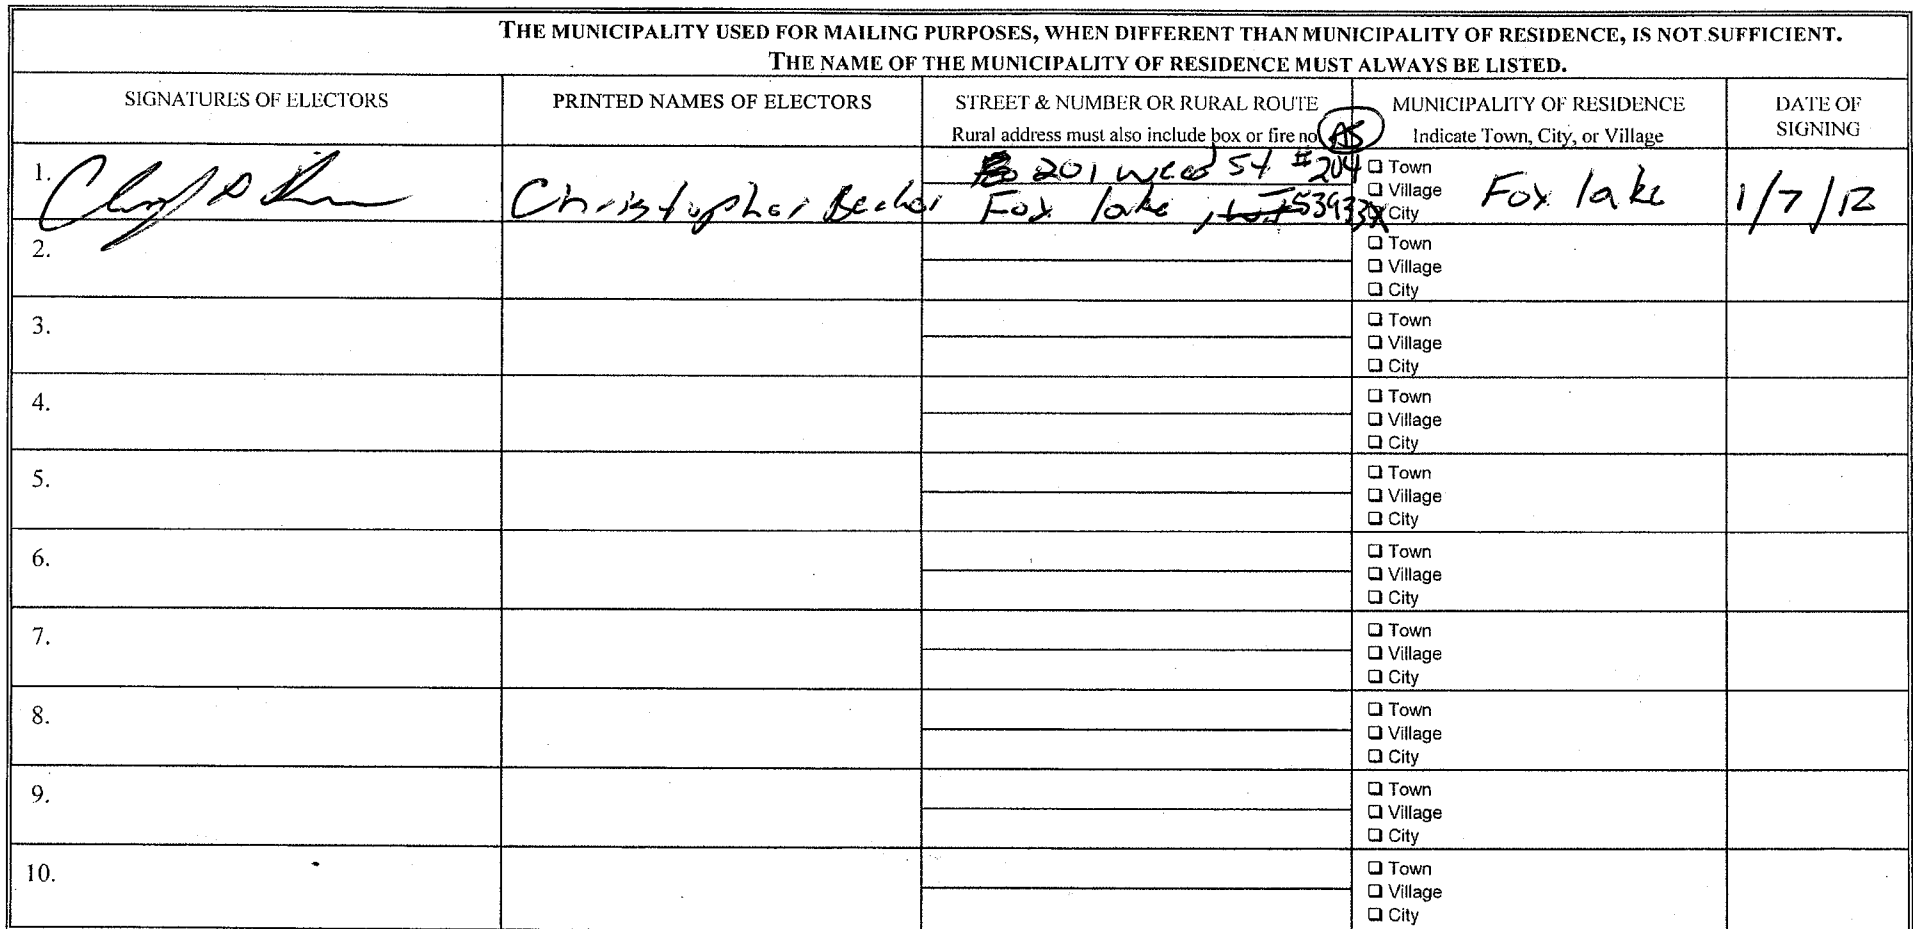 THE MUNICIPALITY USED FOR MAILING PURPOSES, WHEN DIFFERENT THAN MUNICIPALITY OF RESIDENCE, IS NOT SUFFICIENT.
THE NAME OF THE MUNICIPALITY OF RESIDENCE MUST ALWAYS BE LISTED.
SIGNATURES OF ELECTORS
PRINTED NAMES OF ELECTORS
STREET & NUMBER OR RURAL ROUTE
Rural address must also include box or fire no
AS
MUNICIPALITY OF RESIDENCE
Indicate Town, City, or Village
DATE OF
SIGNING
1.
Christopher Becker
201 weed St #204
Fox lake, 53933
Town
Village
X City
Fox lake
1/7/12
2.
Town
Village
City
3.
Town
Village
City
4.
Town
Village
City
5.
Town
Village
City
6.
Town
Village
City
7.
Town
Village
City
8.
Town
Village
City
9.
Town
Village
City
10.
Town
Village
City